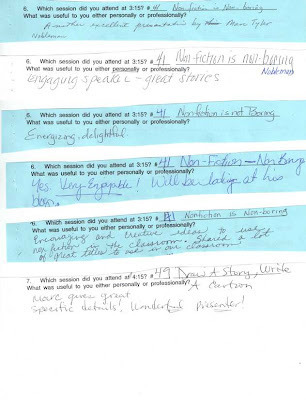 6. Which session did you attend at 3:15? # 41 Non-fiction is Non-boring
What was useful to you either personally or professionally?
Another excellent presentation by Marc Tyler
Nobleman
6. Which session did you attend at 3:15? # 41 Non-fiction is non-boring
What was useful to you either personally or professionally? Nobleman
engaging speaker - great stories
6. Which session did you attend at 3:15? # 41 Nonfiction is not Boring
What was useful to you either personally or professionally?
Energizing, delightful.
6. Which session did you attend at 3:15? # 41 Non-Fiction - Non Boring
What was useful to you either personally or professionally?
Yes. Very Enjoyable! Will be looking at his
6. Which session did you attend at 3:15? # 41 Nonfiction is Non-boring
What was useful to you either personally or professionally?
Encouraging and creative ideas to use
nonfiction in the classroom. Shared a lot
of great titles to use in our classroom
7. Which session did you attend at 4:15? # 49 Draw A Story, Write
What was useful to you either personally or professionally? A Cartoon
Marc gives great
specific details! Wonderful Presenter!